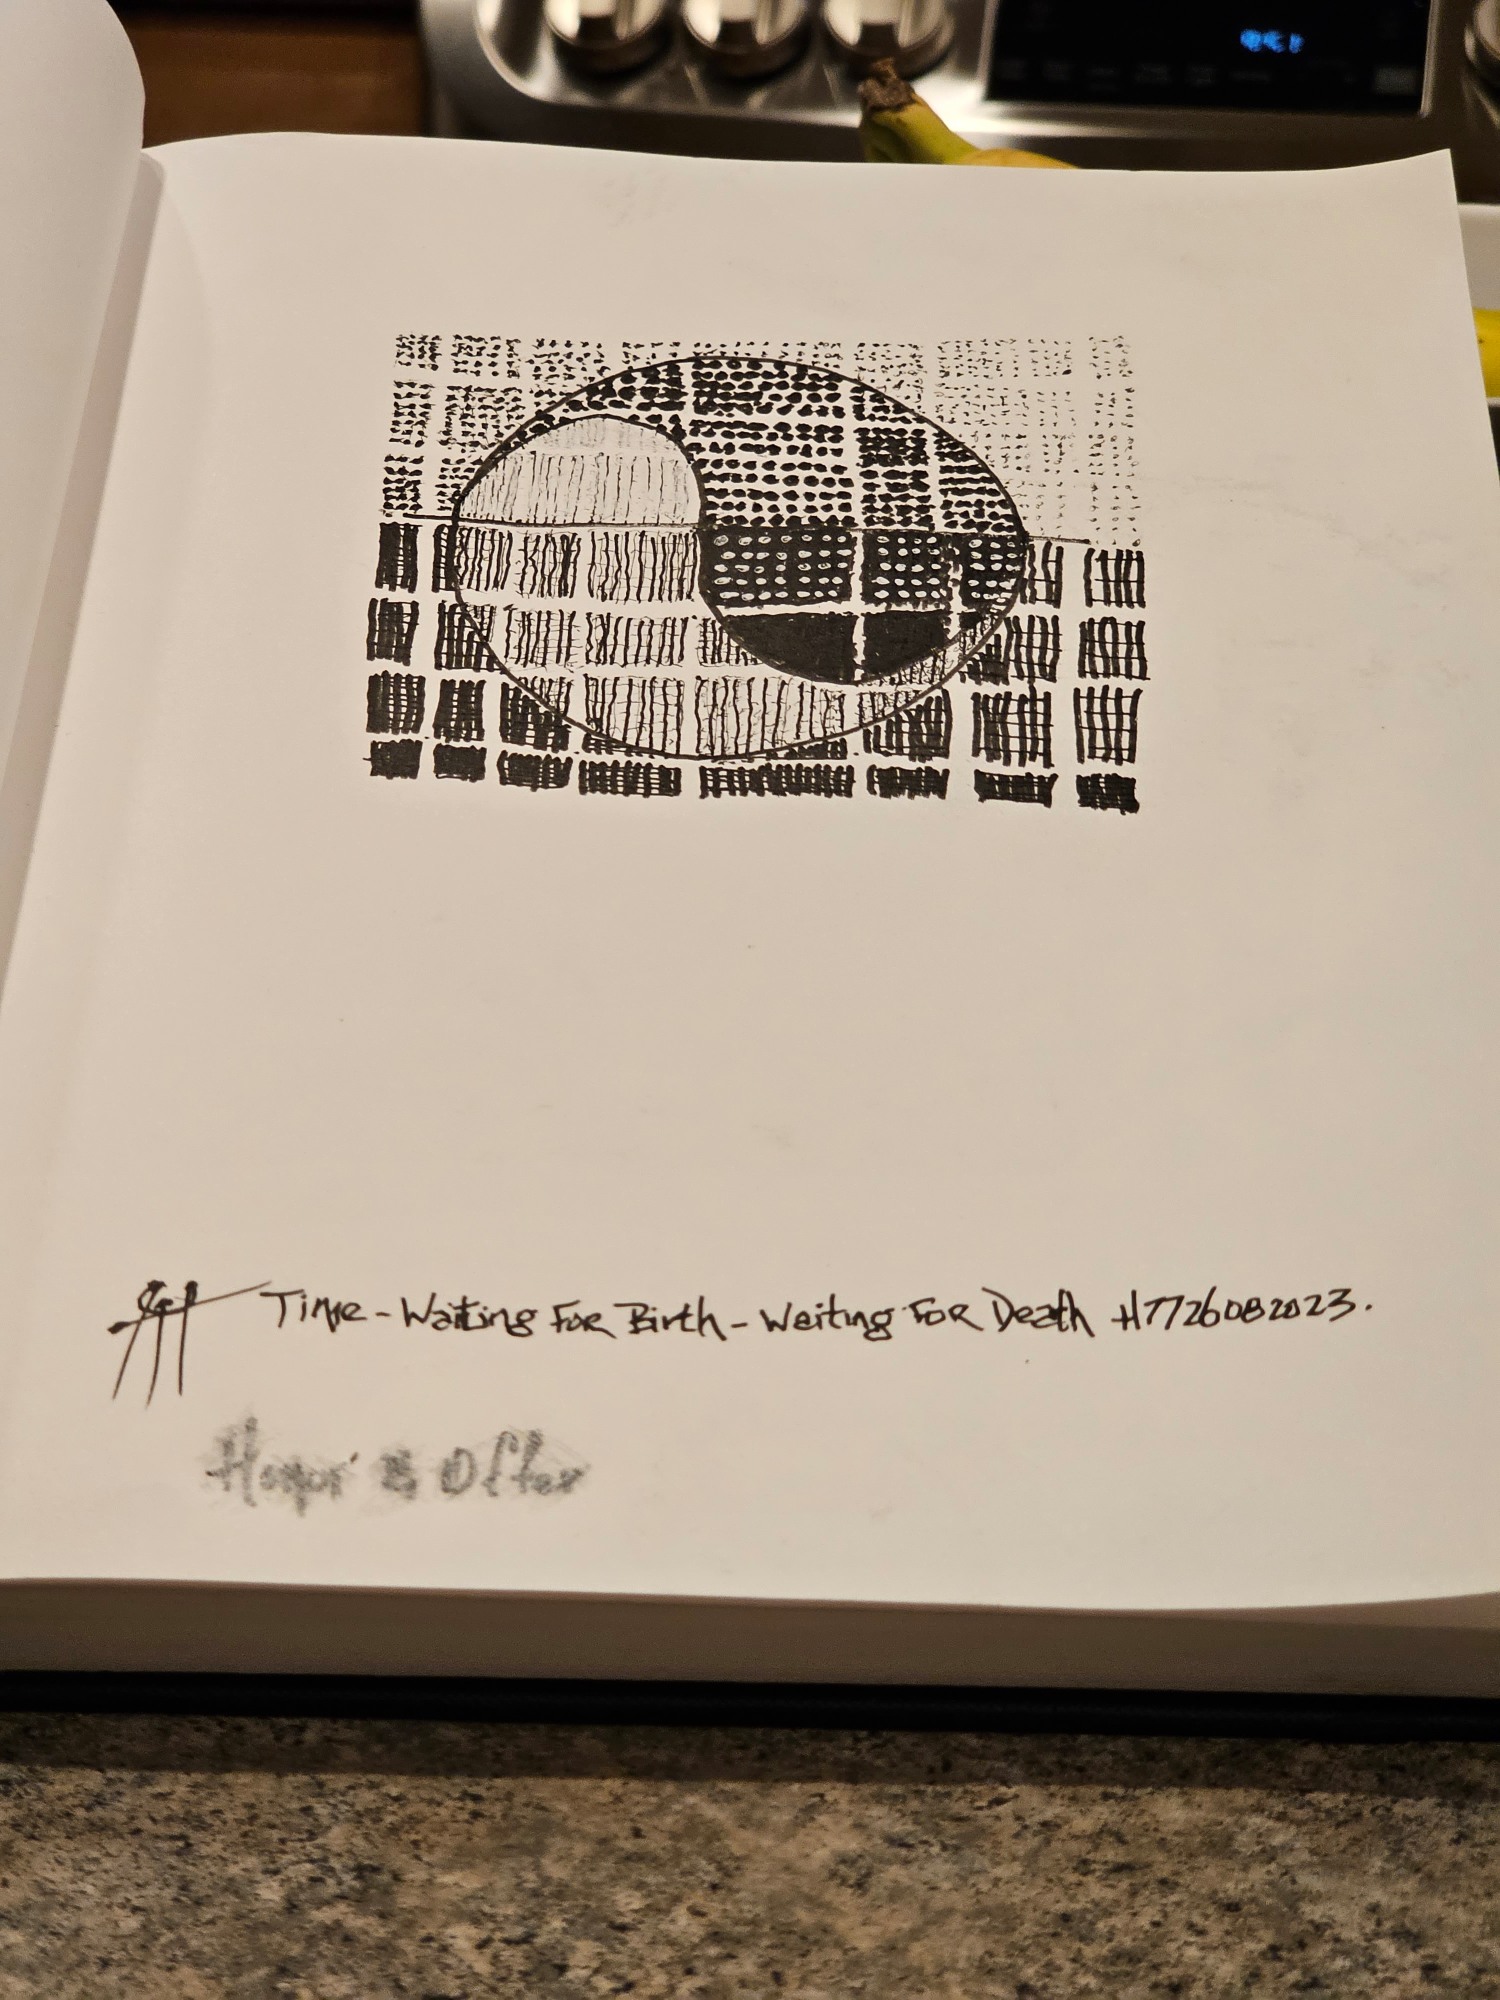 Time - Waiting For Birth - Waiting For Death H7726082023.